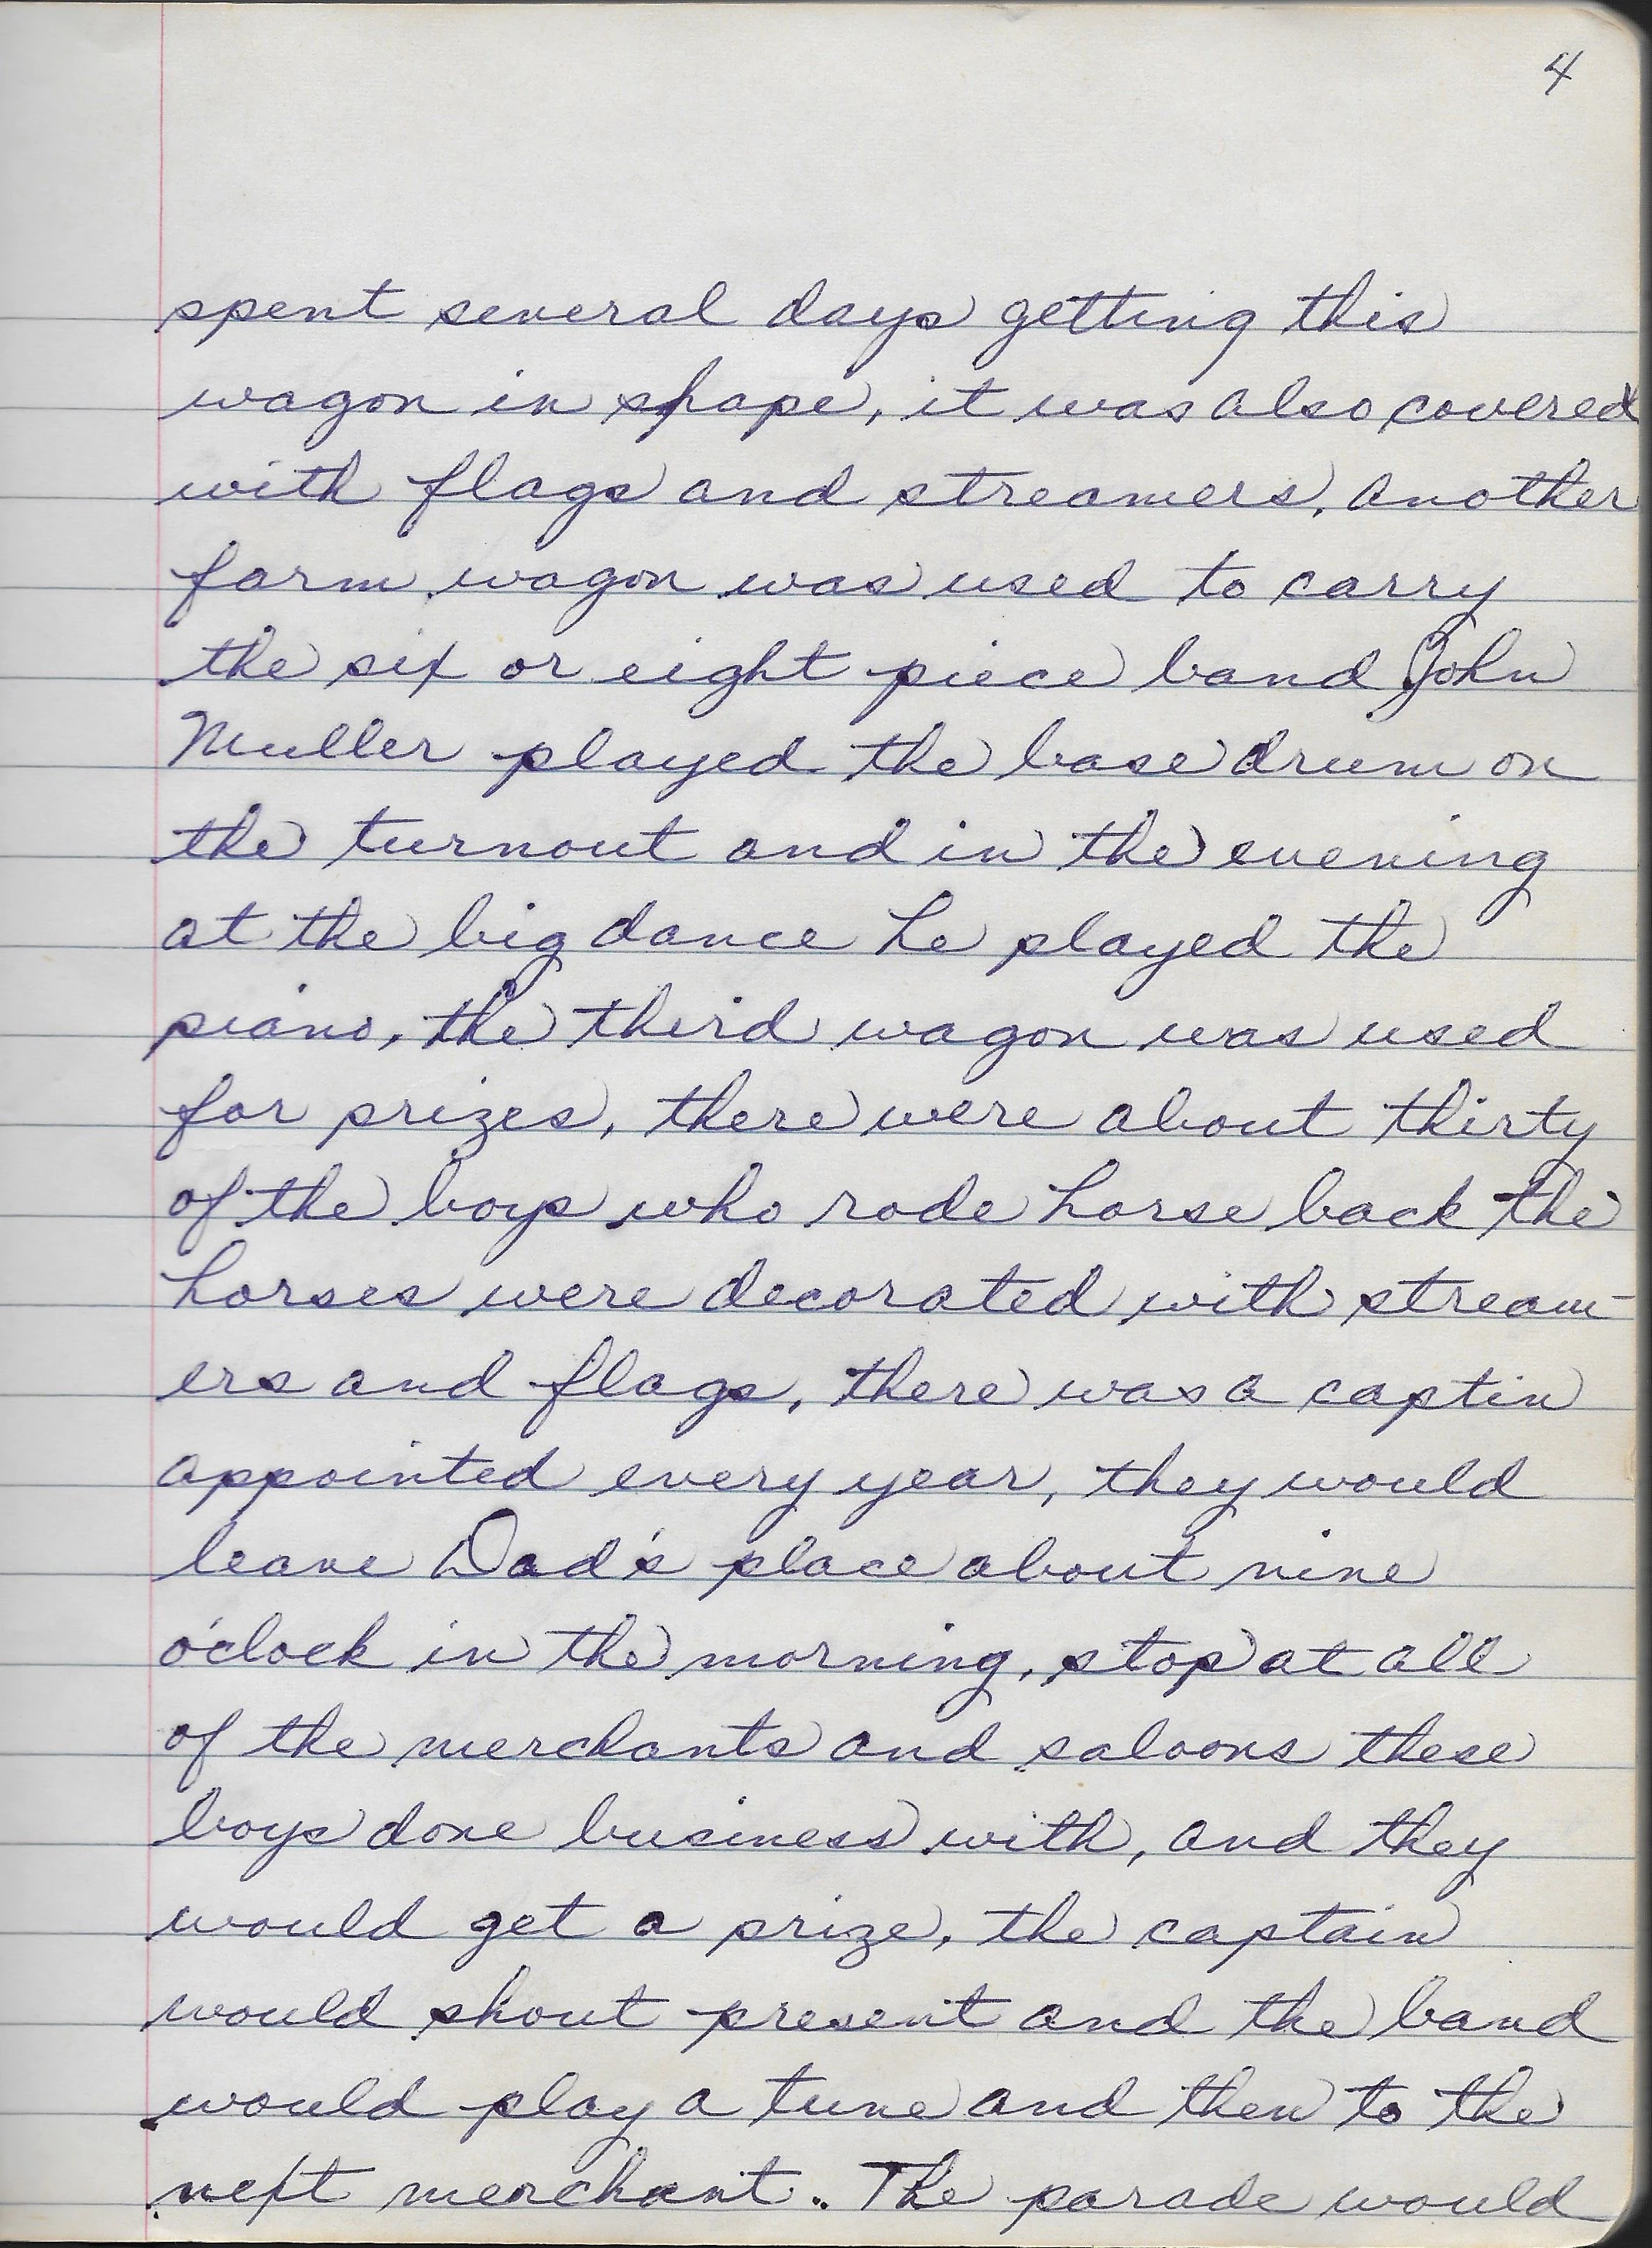 4
spent several days getting this
wagon in shape, it was also covered
with flags and streamers, another
farm wagon was used to carry
the six or eight piece band John
Muller played the base drum on
the turnout and in the evening
at the big dance he played the
piano, the third wagon was used
for prizes, there were about thirty
of the boys who rode horse back the
horses were decorated with stream-
ers and flags, there was a captin
appointed every year, they would
leave Dad's place about nine
o'clock in the morning, stop at all
of the merchants and saloons these
boys done business with, and they
would get a prize, the captain
would shout present and the band
would play a tune and then to the
next merchant. The parade would